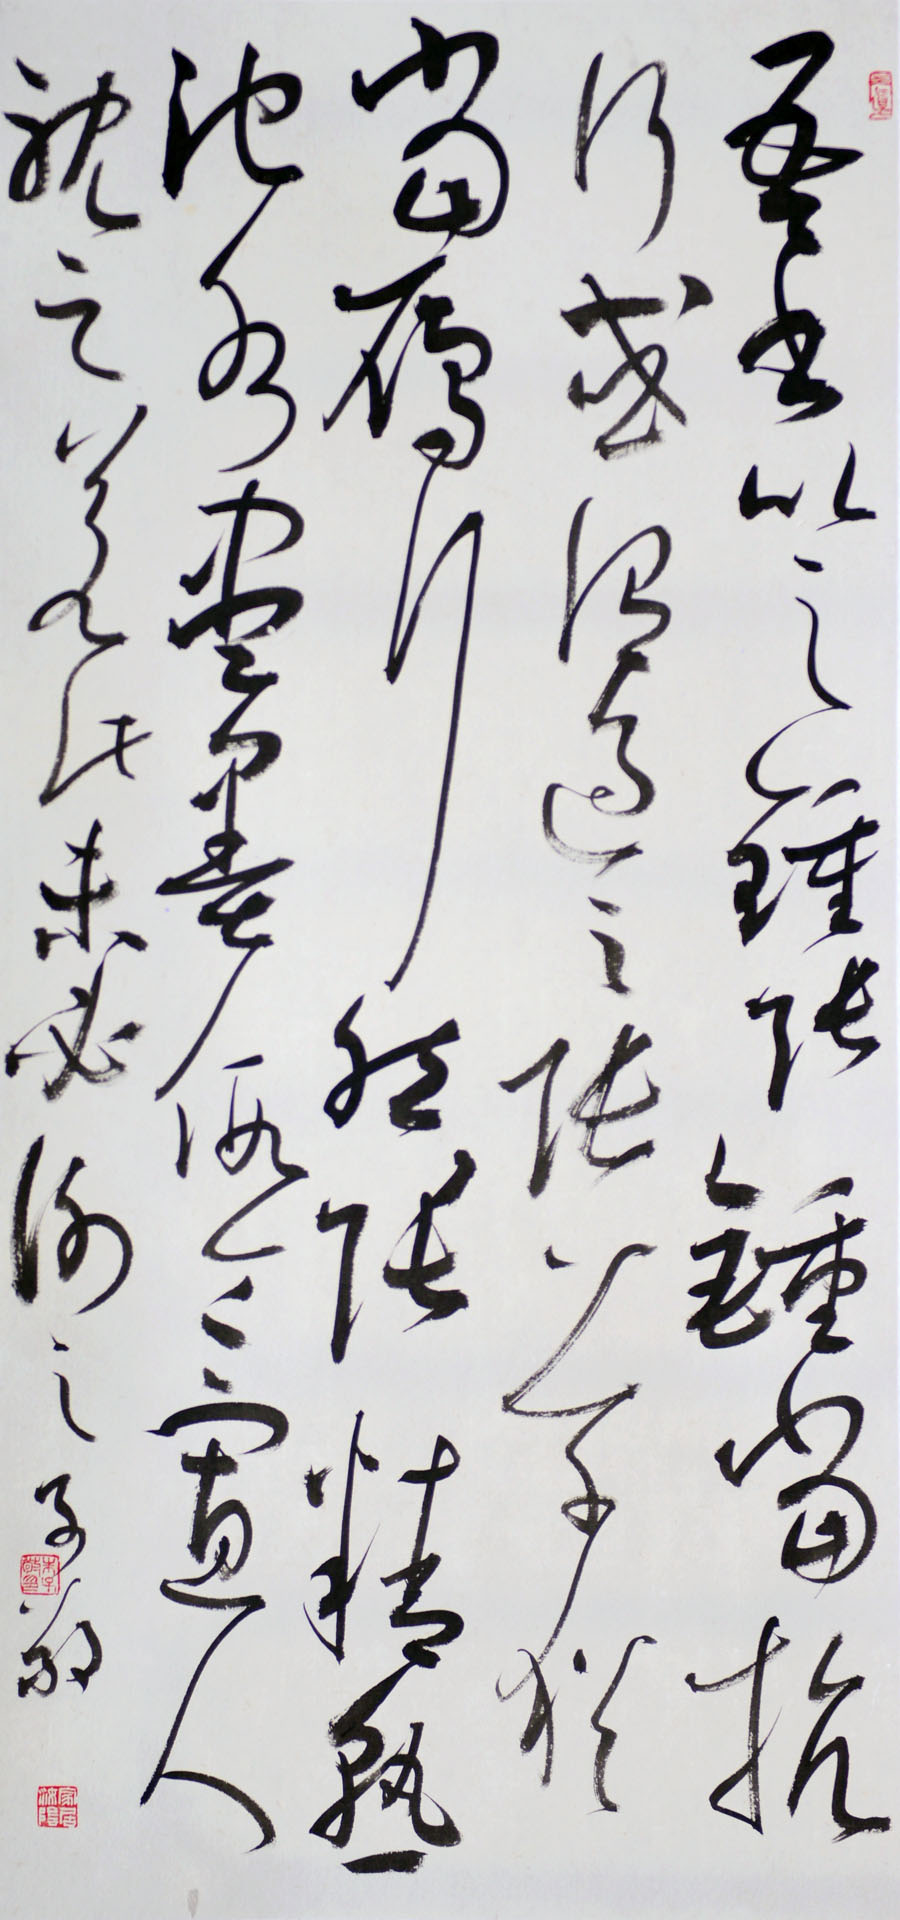 吾書比之鍾張鍾當抗
行或謂過之張草猶
當鴈行然張精熟
池水盡墨假令寡人
耽之若此未必謝之子敬
家居沈陽